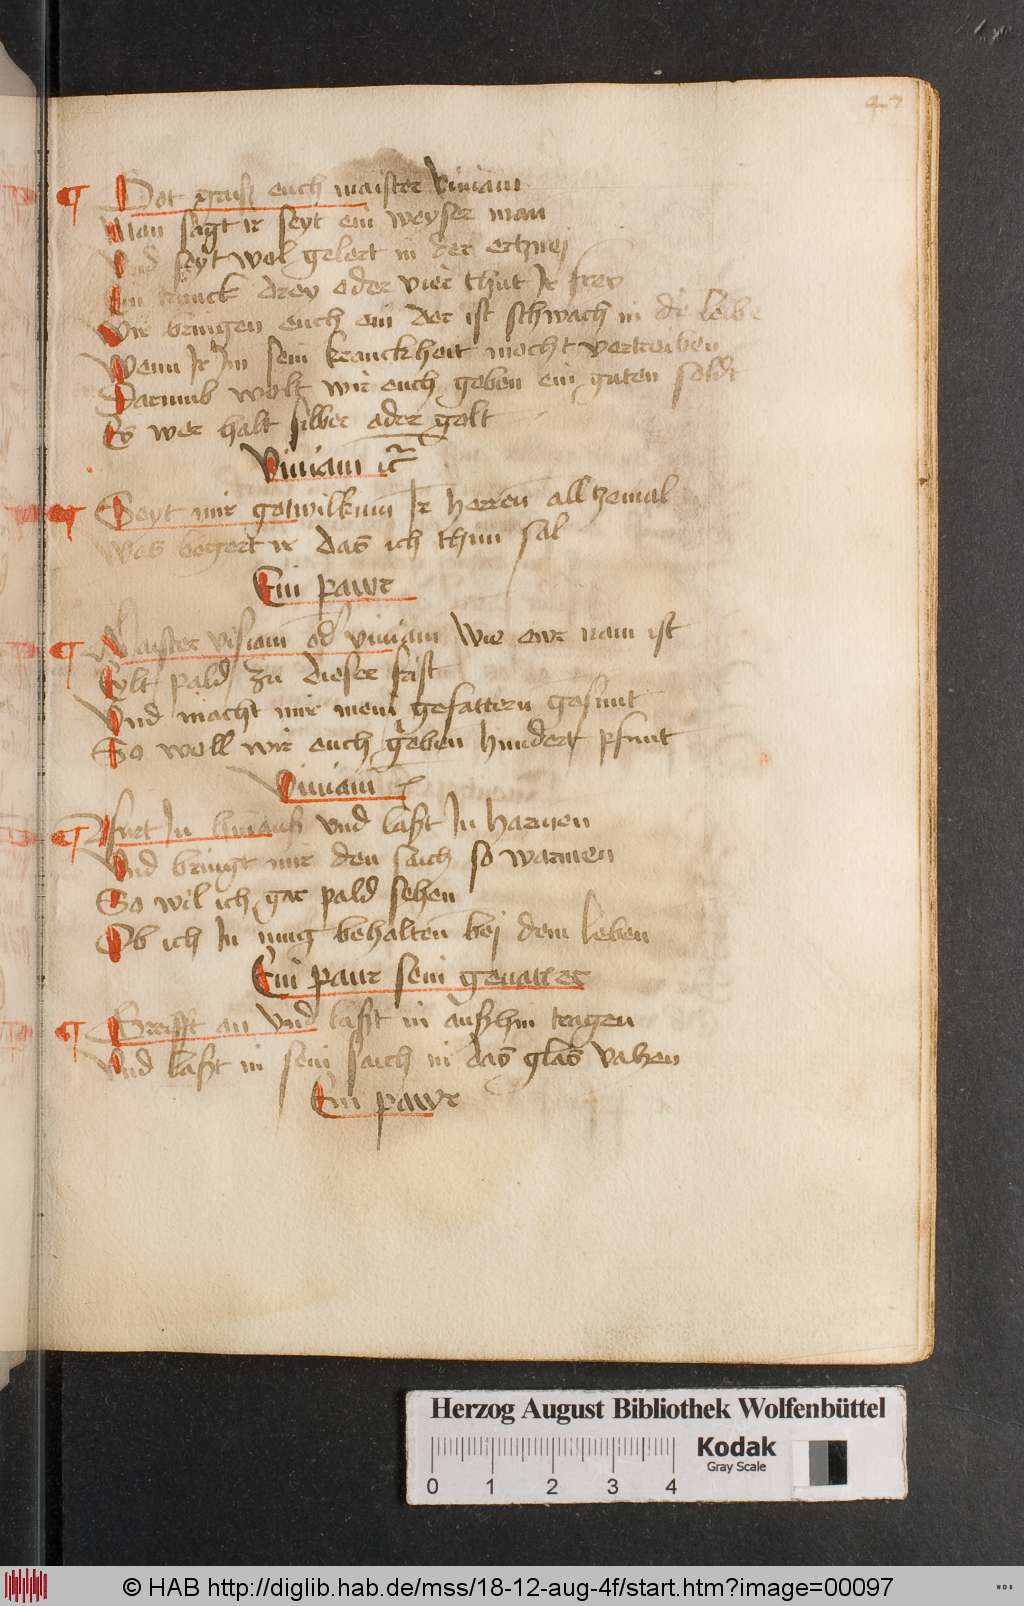 47
Got grus euch maister Viuian
Man sagt ir seyt ein weyser man
Vnd seyt wol gelert in der ertznej
Ein trunck drey oder vier thut Ir frey
Wir bringen euch ein der ist schwach in dē leibe
Wenn Ir Im sein kranckheit mocht vertreiben
Darumb wolt wir euch geben ein guten soldt
Es wer halt silber oder golt
Viuian
Seyt mir gotwilkum Ir herren all tzemal
Was begert ir das ich thun sal
Ein pawr
Maister visian od viuian wie ewr nam ist
Eylt pald zu dieser frist
Vnd macht mir mein gefattern gesunt
So woll wir euch geben hundert pfunt
Viuian
In vnd laszt In harnen
Vnd bringt mir den saich so warmen
So wil ich gar pald sehen
Ob ich In mug behalten bej dem leben
Ein paur sein geuatter
Greifft an vnd laszt in auszhin tragen
Vnd laszt in sein saich in das glas vahen
Ein pawr
Herzog August Bibliothek Wolfenbüttel
Kodak
Gray Scale
0 1 2 3 4
© HAB http://diglib.hab.de/mss/18-12-aug-4f/start.htm?image=00097